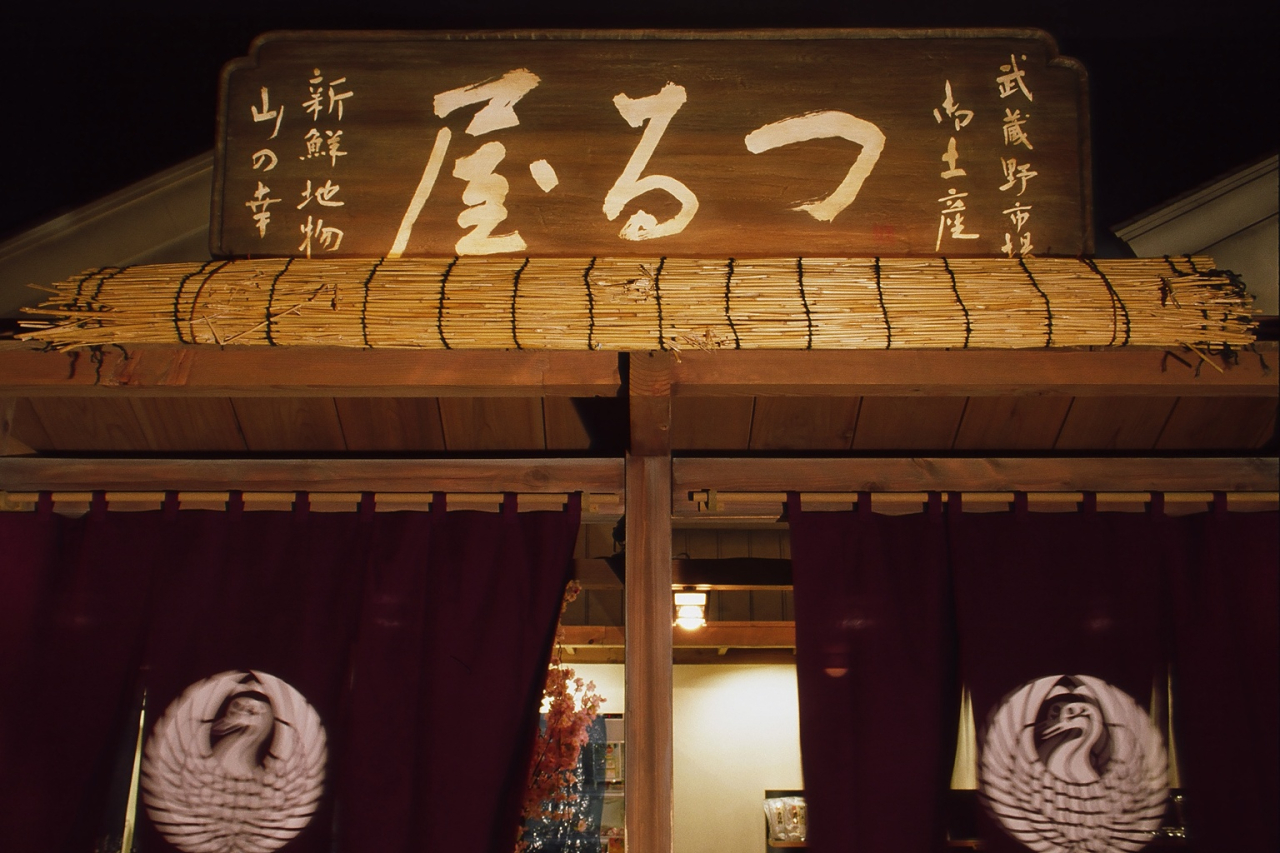 武蔵野市場
御土産
つるー屋
新鮮地物
山の幸